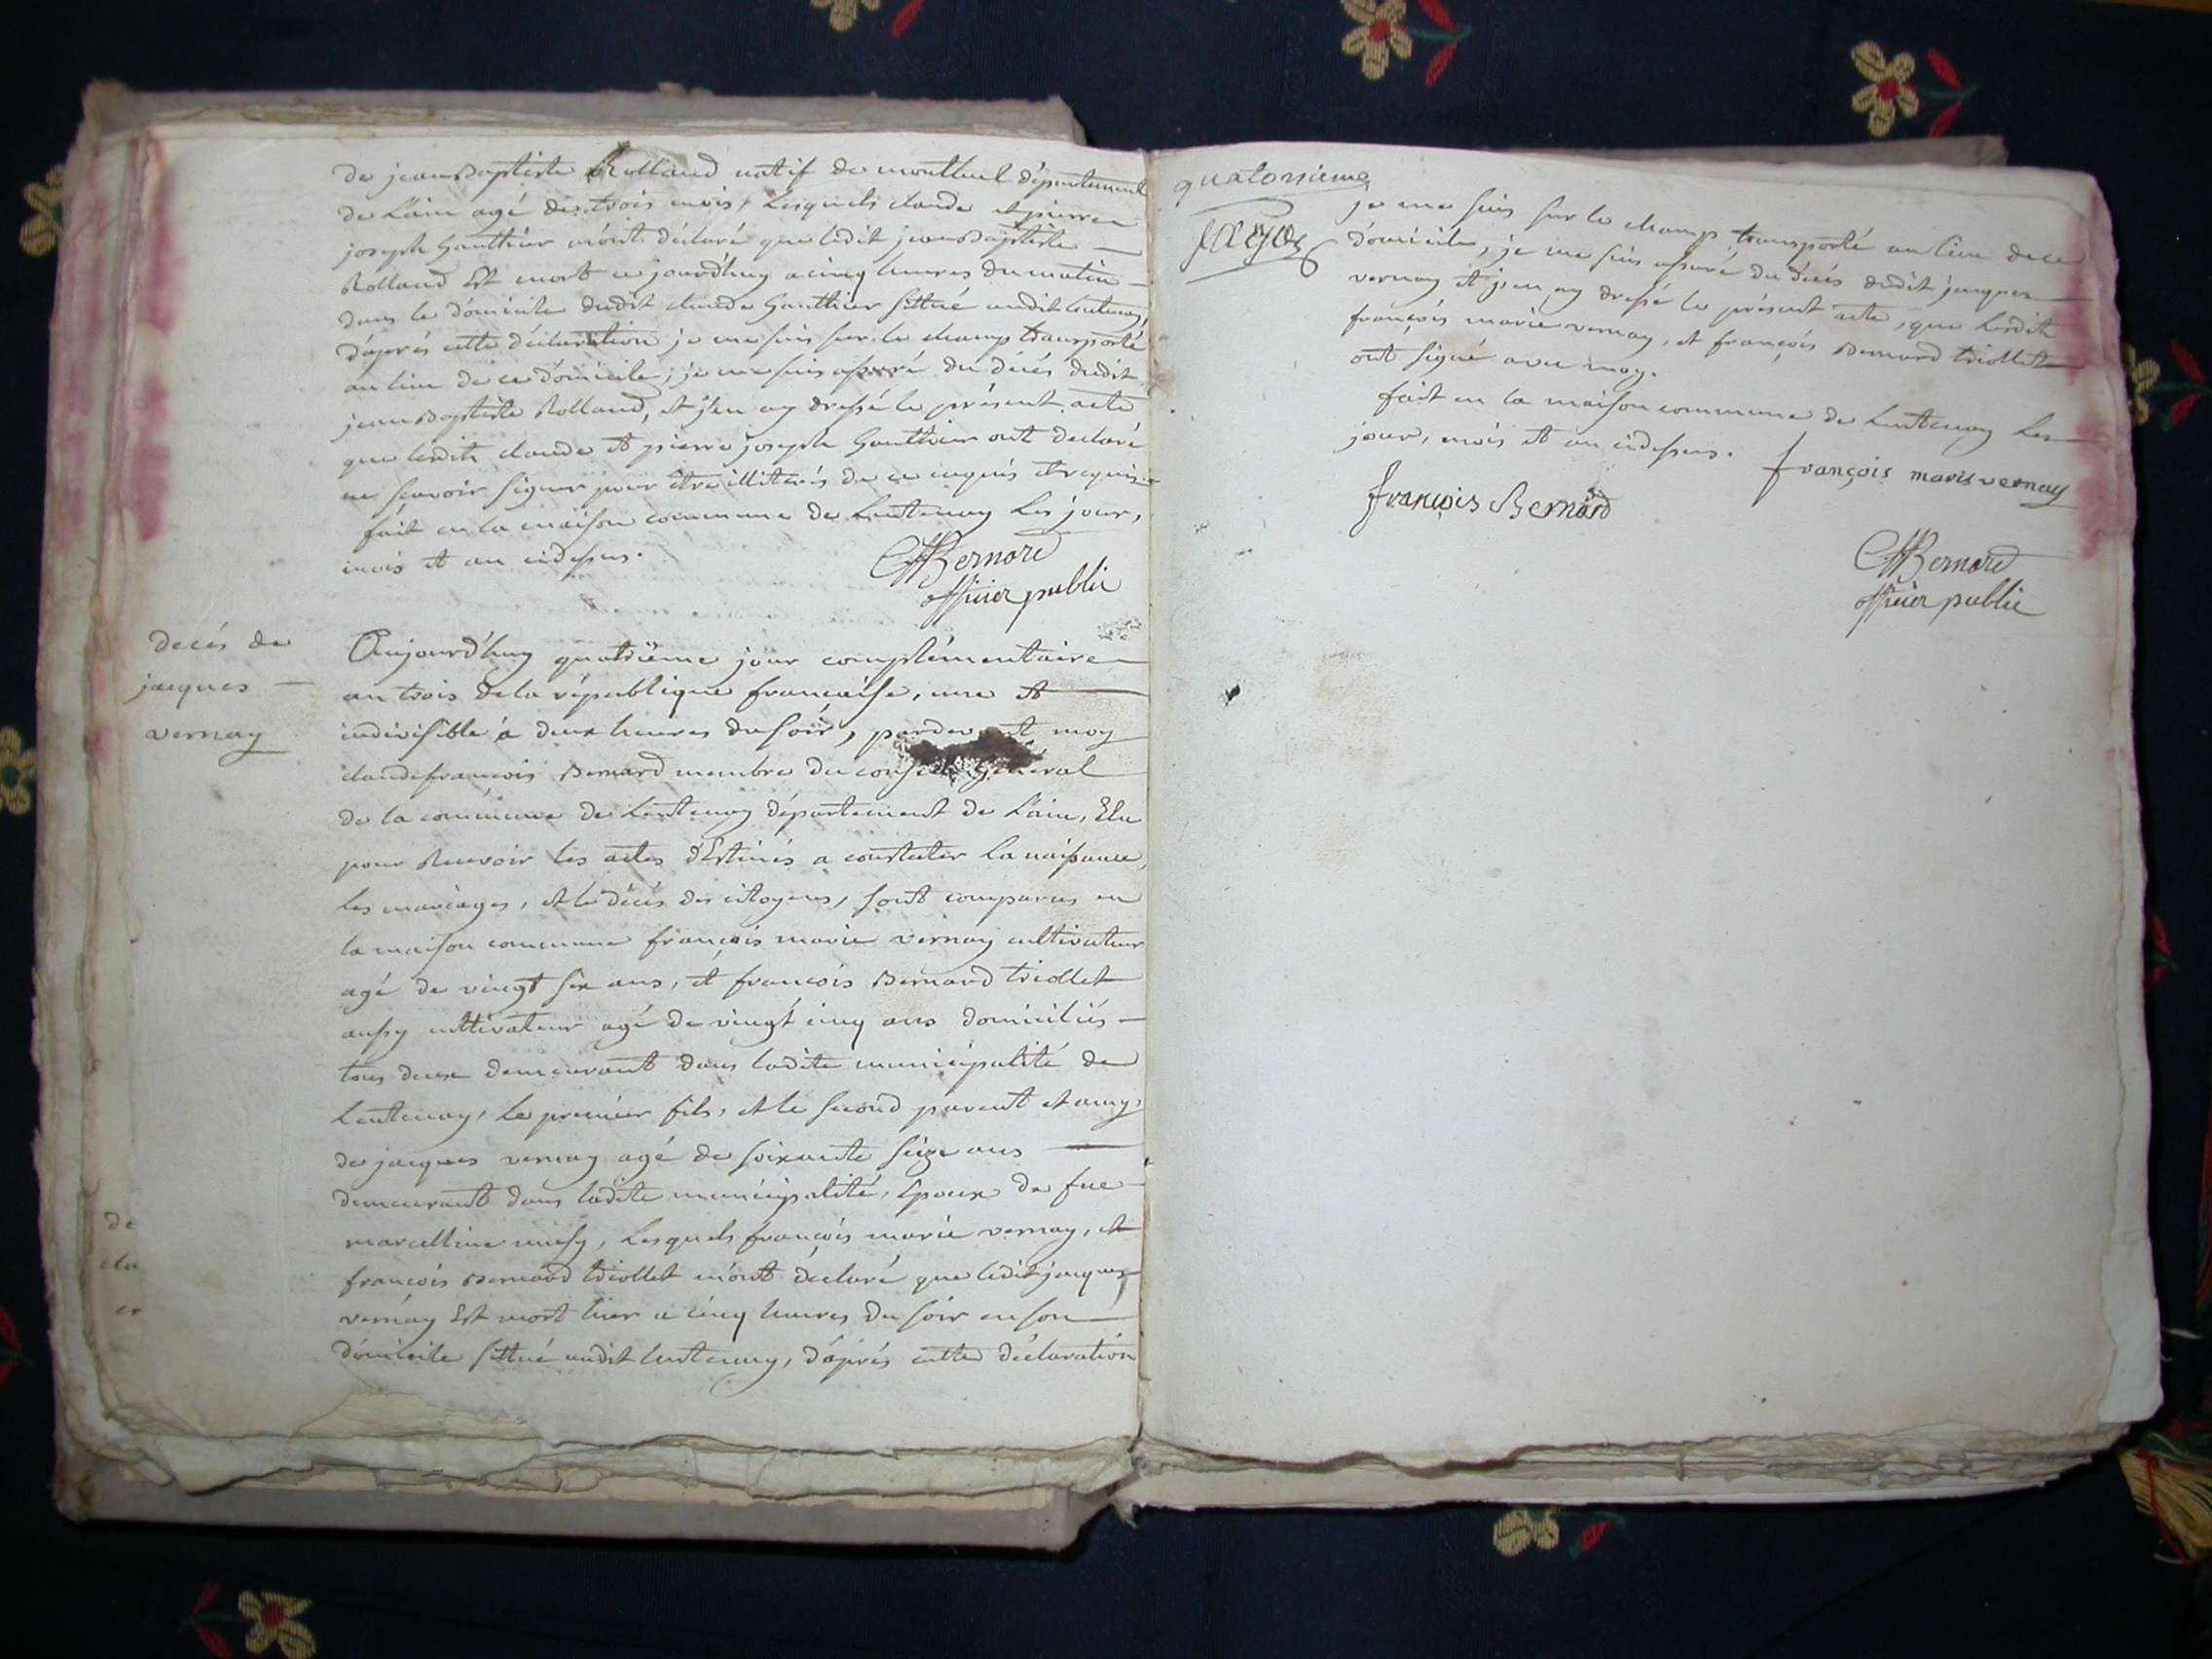 de jean Baptiste Rolland natif de montluel département
de L'ain agé de trois mois, Lesquels claude et pierre
joseph Gauthier m'ont déclaré que ledit jean Baptiste
Rolland Est mort ce jourd'huy a cinq heures du matin
dans le domicile dudit claude Gauthier sittué audit Lentenay,
d'aprés cette déclaration je me suis sur le champs transporté
au lieu de ce domicile, je me suis assuré du décés dudit
jean Baptiste Rolland, et j'en ay dressé le présent acte
que lesdits claude et pierre joseph Gauthier ont declaré
ne scavoir signer pour être illiterés de ce enquis et requis.
fait en la maison commune de Lentenay les jour,
mois et an cidessus.
CfBernard
officier public
decés de
jacques
vernay
Aujourd'huy quatrième jour complémentaire
an trois de la république française, une et
indivisible à deux heures du soir, pardevant moy
claude françois Bernard membre du conseil général
de la commune de Lentenay département de L'ain, Elu
pour Recevoir les actes dEstinés a constater la naissance,
les mariages, et le décés des citoyens, sont comparus en
la maison commune françois marie vernay cultivateur
agé de vingt six ans, et francois Bernard triollet
aussy cultivateur agé de vingt cinq ans domiciliés
tous deux demeurant dans ladite municipalité de
Lentenay, le premier fils, et le second parent et amy,
de jacques vernay agé de soixante seize ans
demeurant dans ladite municipalité, Epoux de fue
marcelline, Lesquels françois marie vernay, et
françois Bernard triollet m'ont déclaré que ledit jacques
vernay Est mort hier a cinq heures du soir en son
domicile sittué audit Lentenay, d'aprés cette déclaration
quatorsieme
page
je me suis sur le champs transporté au lieu de ce
domicile, je me suis assuré du décés dudit jacques
vernay et j'en ay dressé le présent acte, que lesdits
françois marie vernay, et françois Bernard triollet
ont signé avec moy.
fait en la maison commune de Lentenay les
jour, mois et an cidessus.
françois marie vernay
françois Bernard
CfBernard
officier public
de
cla
er